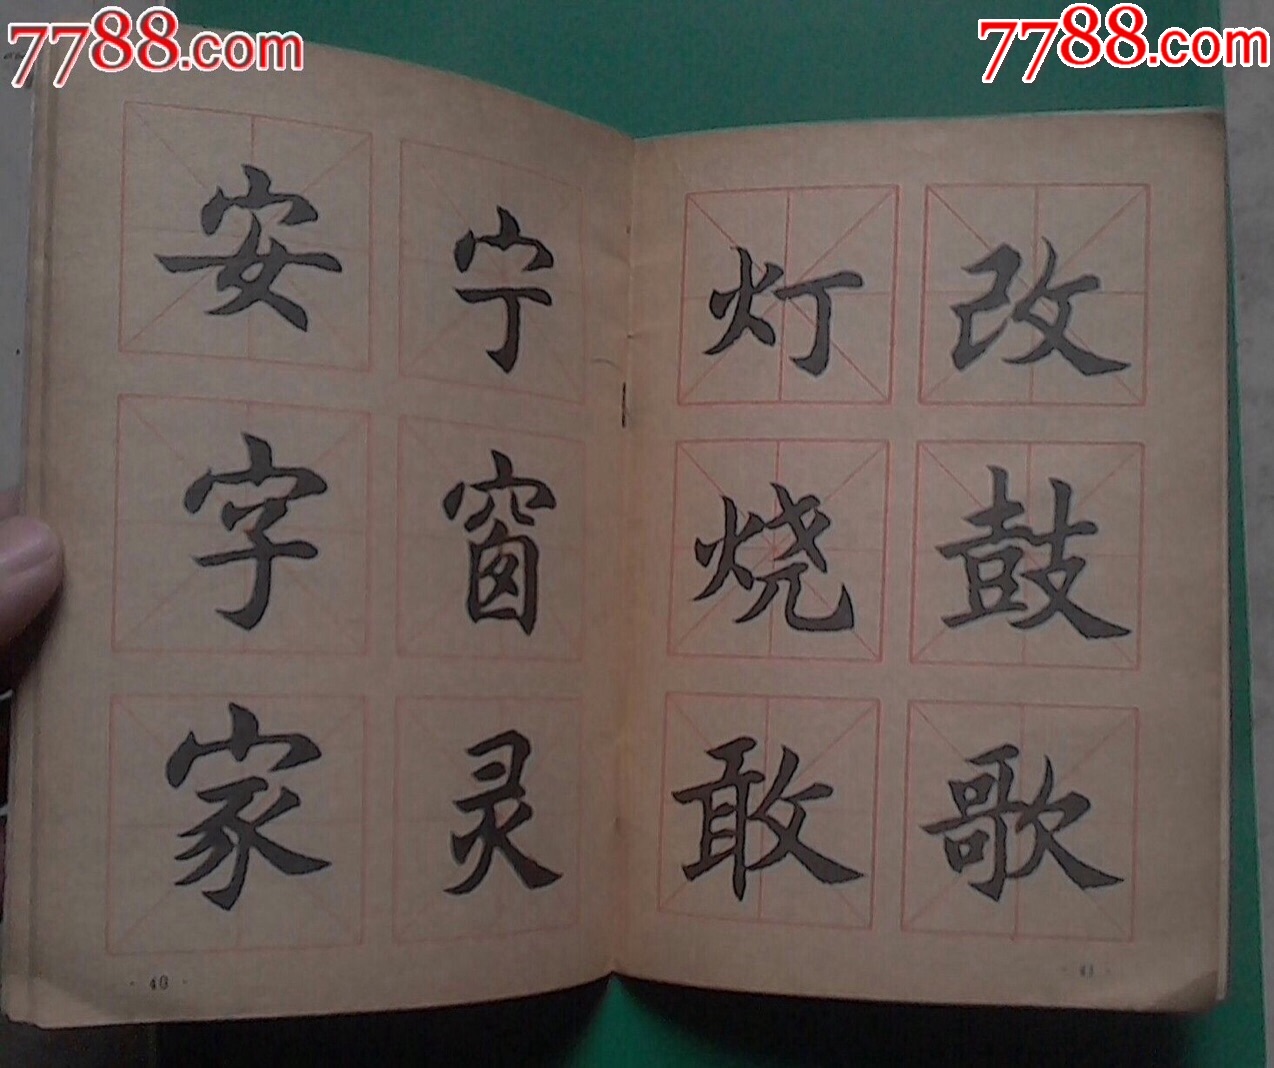 7788.com
7788.com
安宁
字窗
家灵
· 40 ·
灯改
烧鼓
敢歌
· 41 ·